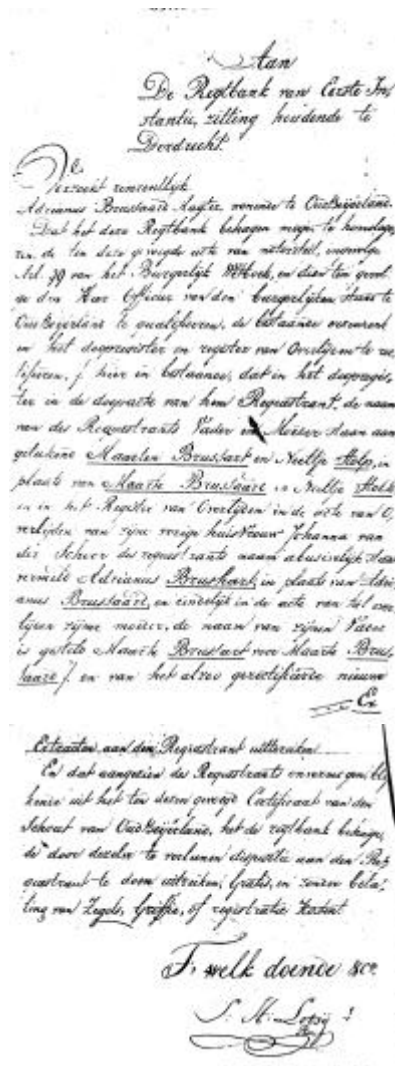 Aan
De Regtbank van Eerste In,
stantie, zitting houdende te
Dordrecht.
Verzoekt reverentlijk
Adrianus Brussaard wonende te OudBeijerland.
Dat het deze Regtbank behagen moge te homologe,
ren, de ten deze gevoegde acte van notorieteit, ingevolge
Art. 99 van het Burgerlijk Wetboek, en dien ten gevol
ge den Heer Officier van den burgerlijken staat te
OudBeijerland te qualificeren, de bestaande
in het doopregister en register van Overlijden te rec
tificeren, /: hier in bestaande, dat in het doopregis,
ter in de doopacte van hem Requestrant, de naam
van des Requestrants Vader en Moeder staan aan
getekend Maarten Brussart en Neeltje Stolp, in
plaats van Maarte Brussaard en Neeltje Stolk
en in het Register van Overlijden in de acte van O,
verlijden van zijne vorige huisvrouw Johanna van
der Scheer des requestrants naam abusivelijk staat
vermeld Adrianus Brushart, in plaats van Adri
anus Brussaard, en eindelijk in de acte van het over
lijden zijner moeder, de naam van zijnen Vader
is gesteld Maarte Brussart voor Maarte Brus,
saard :/ en van het alzoo gerectificeerde nieuwe
Ex
Extracten aan den Requestrant uittereiken
En dat aangezien des Requestrants onvermogen blij
kende uit het ten dezen gevoegd Certificaat van den
Schout van OudBeijerland, het de regtbank behage,
de door dezelve te verleenen dispositie aan den Re,
questrant te doen uitreiken, Gratis, en zonder beta,
ling van Zegels, Griffie, of registratie Kosten
T, welk doende &ce